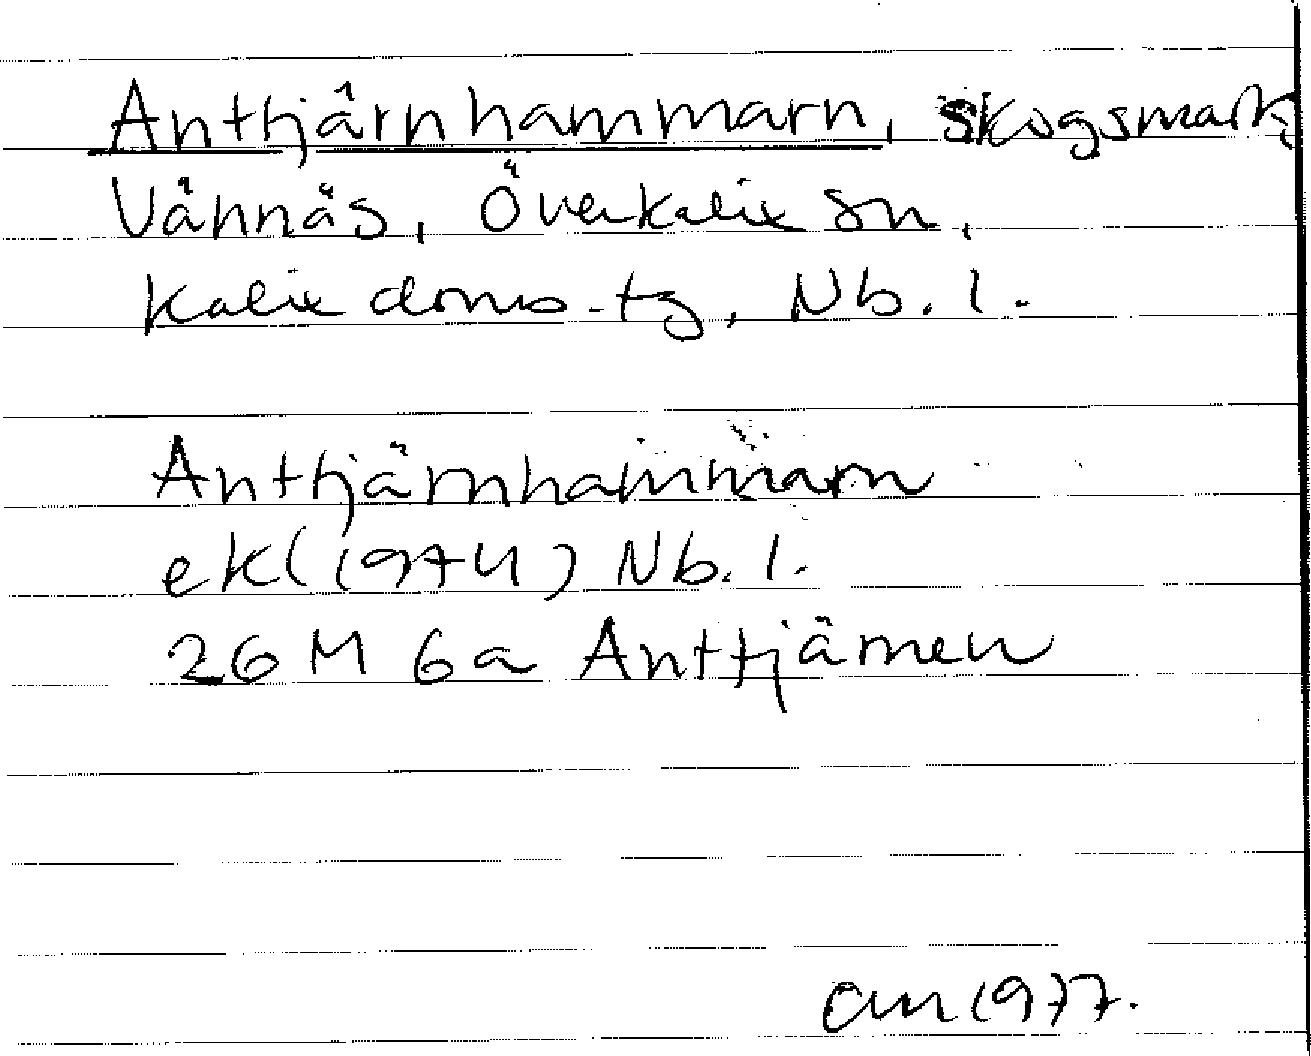 Anttjärnhammarn, skogsmark,
Vännäs, Överkalix sn,
Kalix doms.-tg, Nb. l.
Anttjärnhammarn
ek (1974) Nb. l.
26 M 6a Anttjärnen
1977.